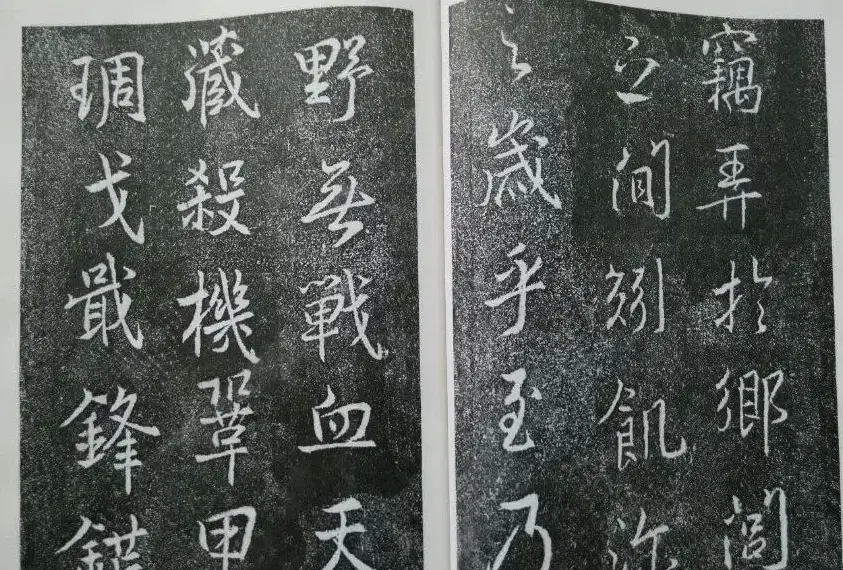 竊弄於鄉閭
之間矧飢沴
之歲乎至乃
野無戰血天
藏殺機鞏甲
琱戈戢鋒